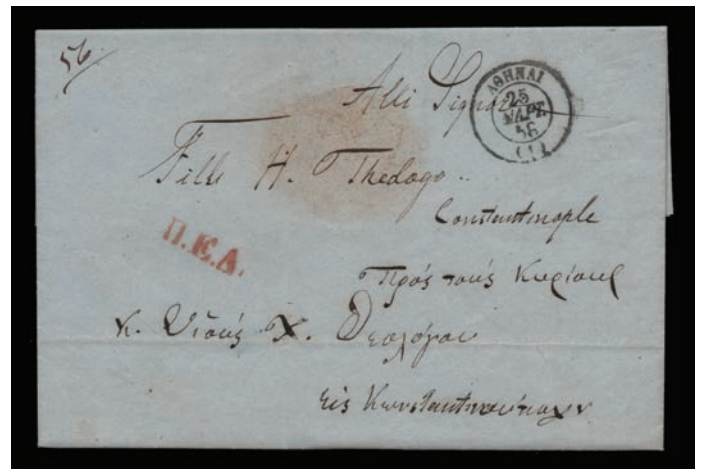 56
Alli Signori
ΑΘΗΝΑΙ
25
ΜΑΡΤ.
56
(1)
Filli H. Thedogo
Constantinople
Π.Ε.Δ.
Πρός τούς Κυρίους
κ. Υἱούς Χ. Θεολόγου
εἰς Κωνσταντινούπολιν